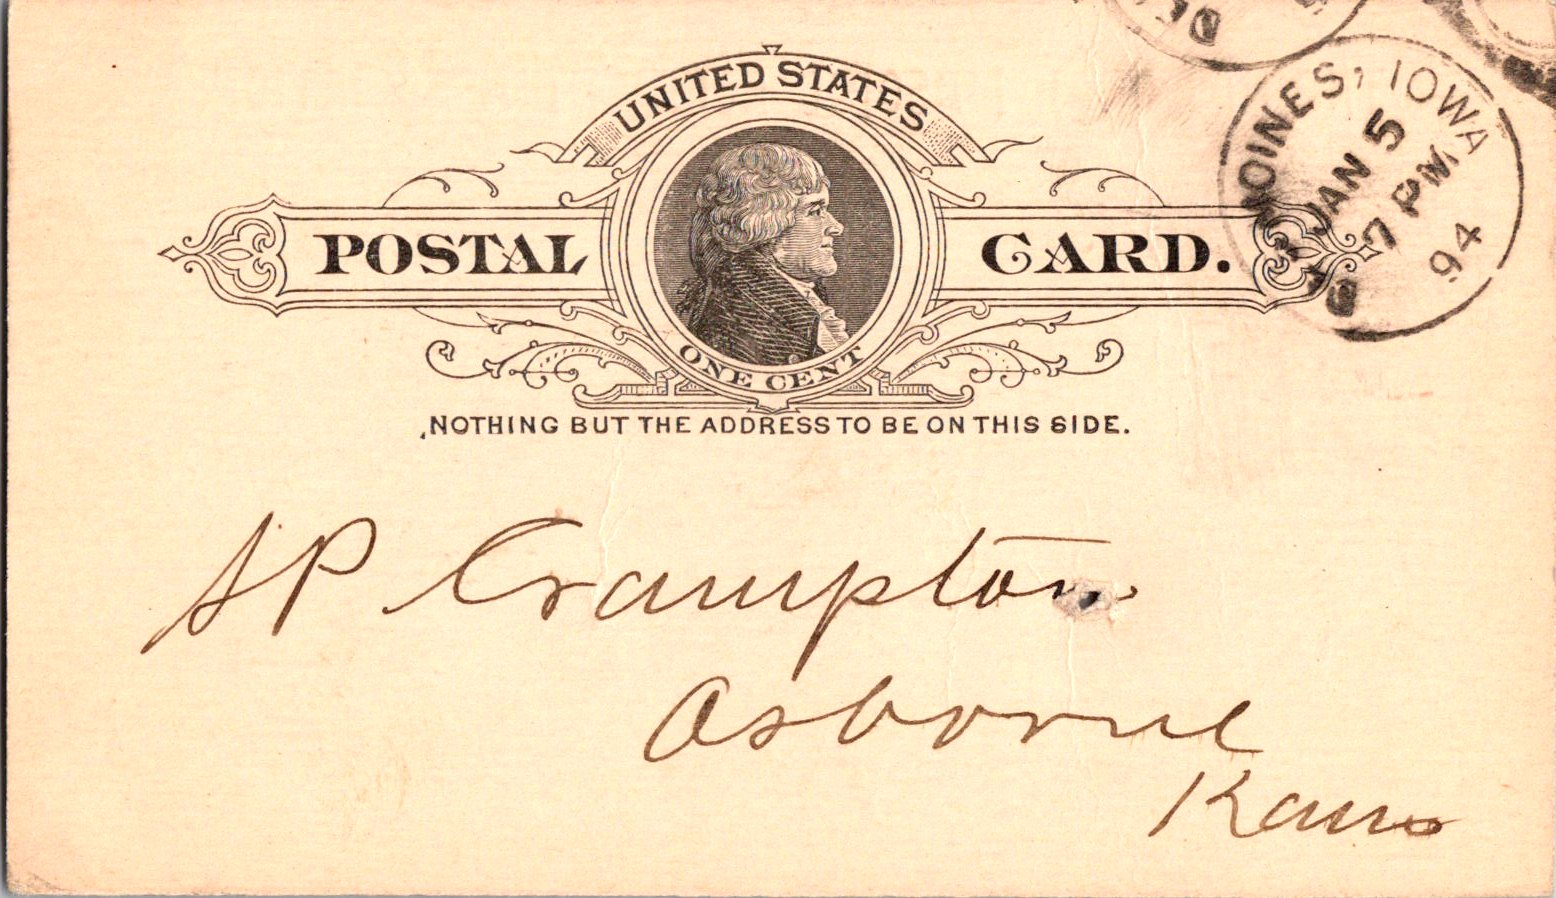 UNITED STATES
POSTAL CARD.
ONE CENT
NOTHING BUT THE ADDRESS TO BE ON THIS SIDE.
DES MOINES, IOWA
JAN 5
7 PM
94
SP Crampton
Osborne
Kans